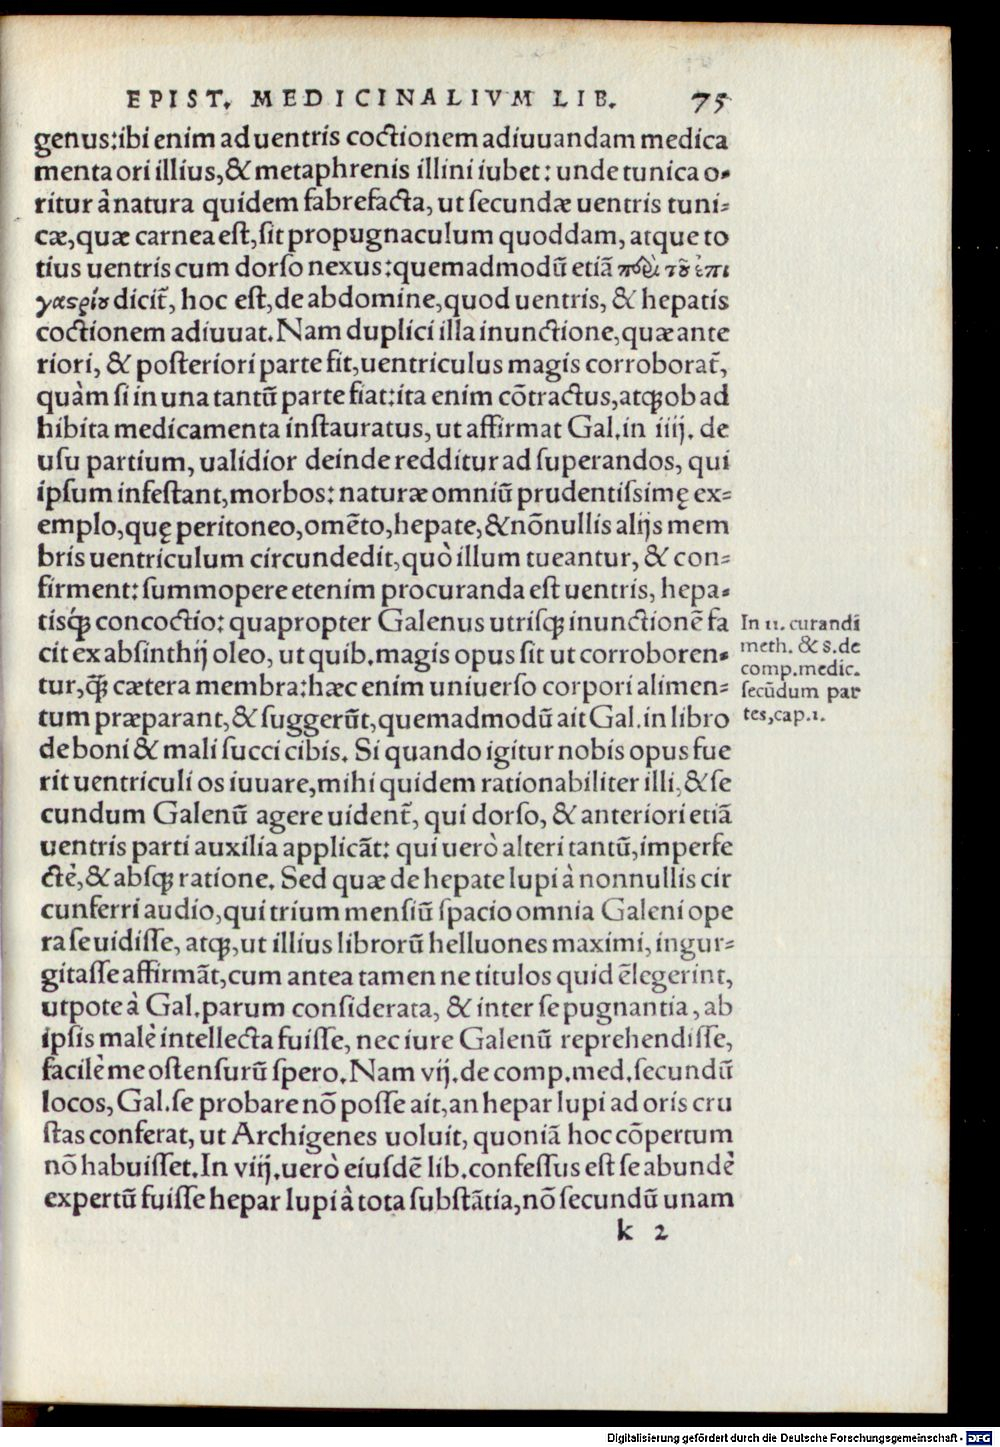 EPIST. MEDICINALIVM LIB. 75
genus:ibi enim ad uentris coctionem adiuuandam medica
menta ori illius,& metaphrenis illini iubet: unde tunica o-
ritur à natura quidem fabrefacta, ut secundæ uentris tuni-
cæ,quæ carnea est,sit propugnaculum quoddam, atque to
tius uentris cum dorso nexus:quemadmodū etiā πεὶ τοῦ ἐπι
γαςρίου dicit̄, hoc est,de abdomine,quod uentris, & hepatis
coctionem adiuuat. Nam duplici illa inunctione,quæ ante
riori, & posteriori parte fit,uentriculus magis corroborat̄,
quàm si in una tantū parte fiat:ita enim cōtractus,atqꝫ ob ad
hibita medicamenta instauratus, ut affirmat Gal.in iiij. de
usu partium, ualidior deinde redditur ad superandos, qui
ipsum infestant,morbos: naturæ omniū prudentissimę ex-
emplo,quę peritoneo,omēto,hepate,& nōnullis alijs mem
bris uentriculum circundedit,quò illum tueantur, & con-
firment: summopere etenim procuranda est uentris, hepa-
tisq́ꝫ concoctio: quapropter Galenus utrisqꝫ inunctionē fa
cit ex absinthij oleo, ut quib.magis opus sit ut corroboren-
tur,q̄ꝫ cætera membra:hæc enim uniuerso corpori alimen-
tum præparant,& suggerūt,quemadmodū ait Gal.in libro
de boni & mali succi cibis. Si quando igitur nobis opus fue
rit uentriculi os iuuare,mihi quidem rationabiliter illi,& se
cundum Galenū agere uident̄, qui dorso, & anteriori etiā
uentris parti auxilia applicāt: qui uerò alteri tantū,imperfe
ctè,& absqꝫ ratione. Sed quæ de hepate lupi à nonnullis cir
cunferri audio,qui trium mensiū spacio omnia Galeni ope
ra se uidisse, atqꝫ,ut illius librorū helluones maximi, ingur-
gitasse affirmāt,cum antea tamen ne titulos quid ēlegerint,
utpote à Gal.parum considerata, & inter se pugnantia, ab
ipsis malè intellecta fuisse, nec iure Galenū reprehendisse,
facilè me ostensurū spero. Nam vij.de comp.med.secundū
locos, Gal.se probare nō posse ait,an hepar lupi ad oris cru
stas conferat, ut Archigenes uoluit, quoniā hoc cōpertum
nō habuisset. In viij.uerò eiusdē lib.confessus est se abundè
expertū fuisse hepar lupi à tota substātia,nō secundū unam
k 2
In 11. curandi
meth. & 8.de
comp.medic.
secūdum par
tes,cap.1.
Digitalisierung gefördert durch die Deutsche Forschungsgemeinschaft - DFG